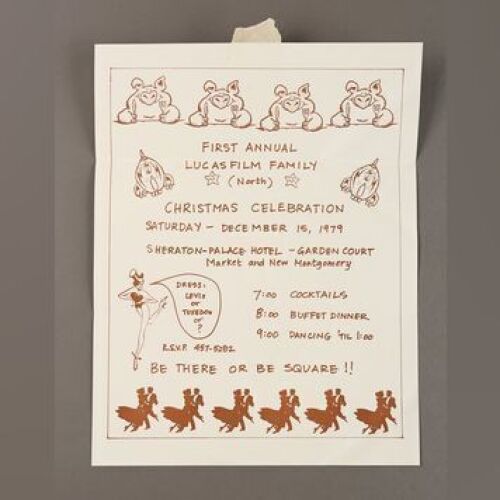 FIRST ANNUAL
LUCASFILM FAMILY
(North)
CHRISTMAS CELEBRATION
SATURDAY - DECEMBER 15, 1979
SHERATON-PALACE HOTEL - GARDEN COURT
Market and New Montgomery
DRESS:
LEVIS
OR
TUXEDOS
OR
?
7:00 COCKTAILS
8:00 BUFFET DINNER
9:00 DANCING 'TIL 1:00
R.S.V.P. 457-5282
BE THERE OR BE SQUARE!!